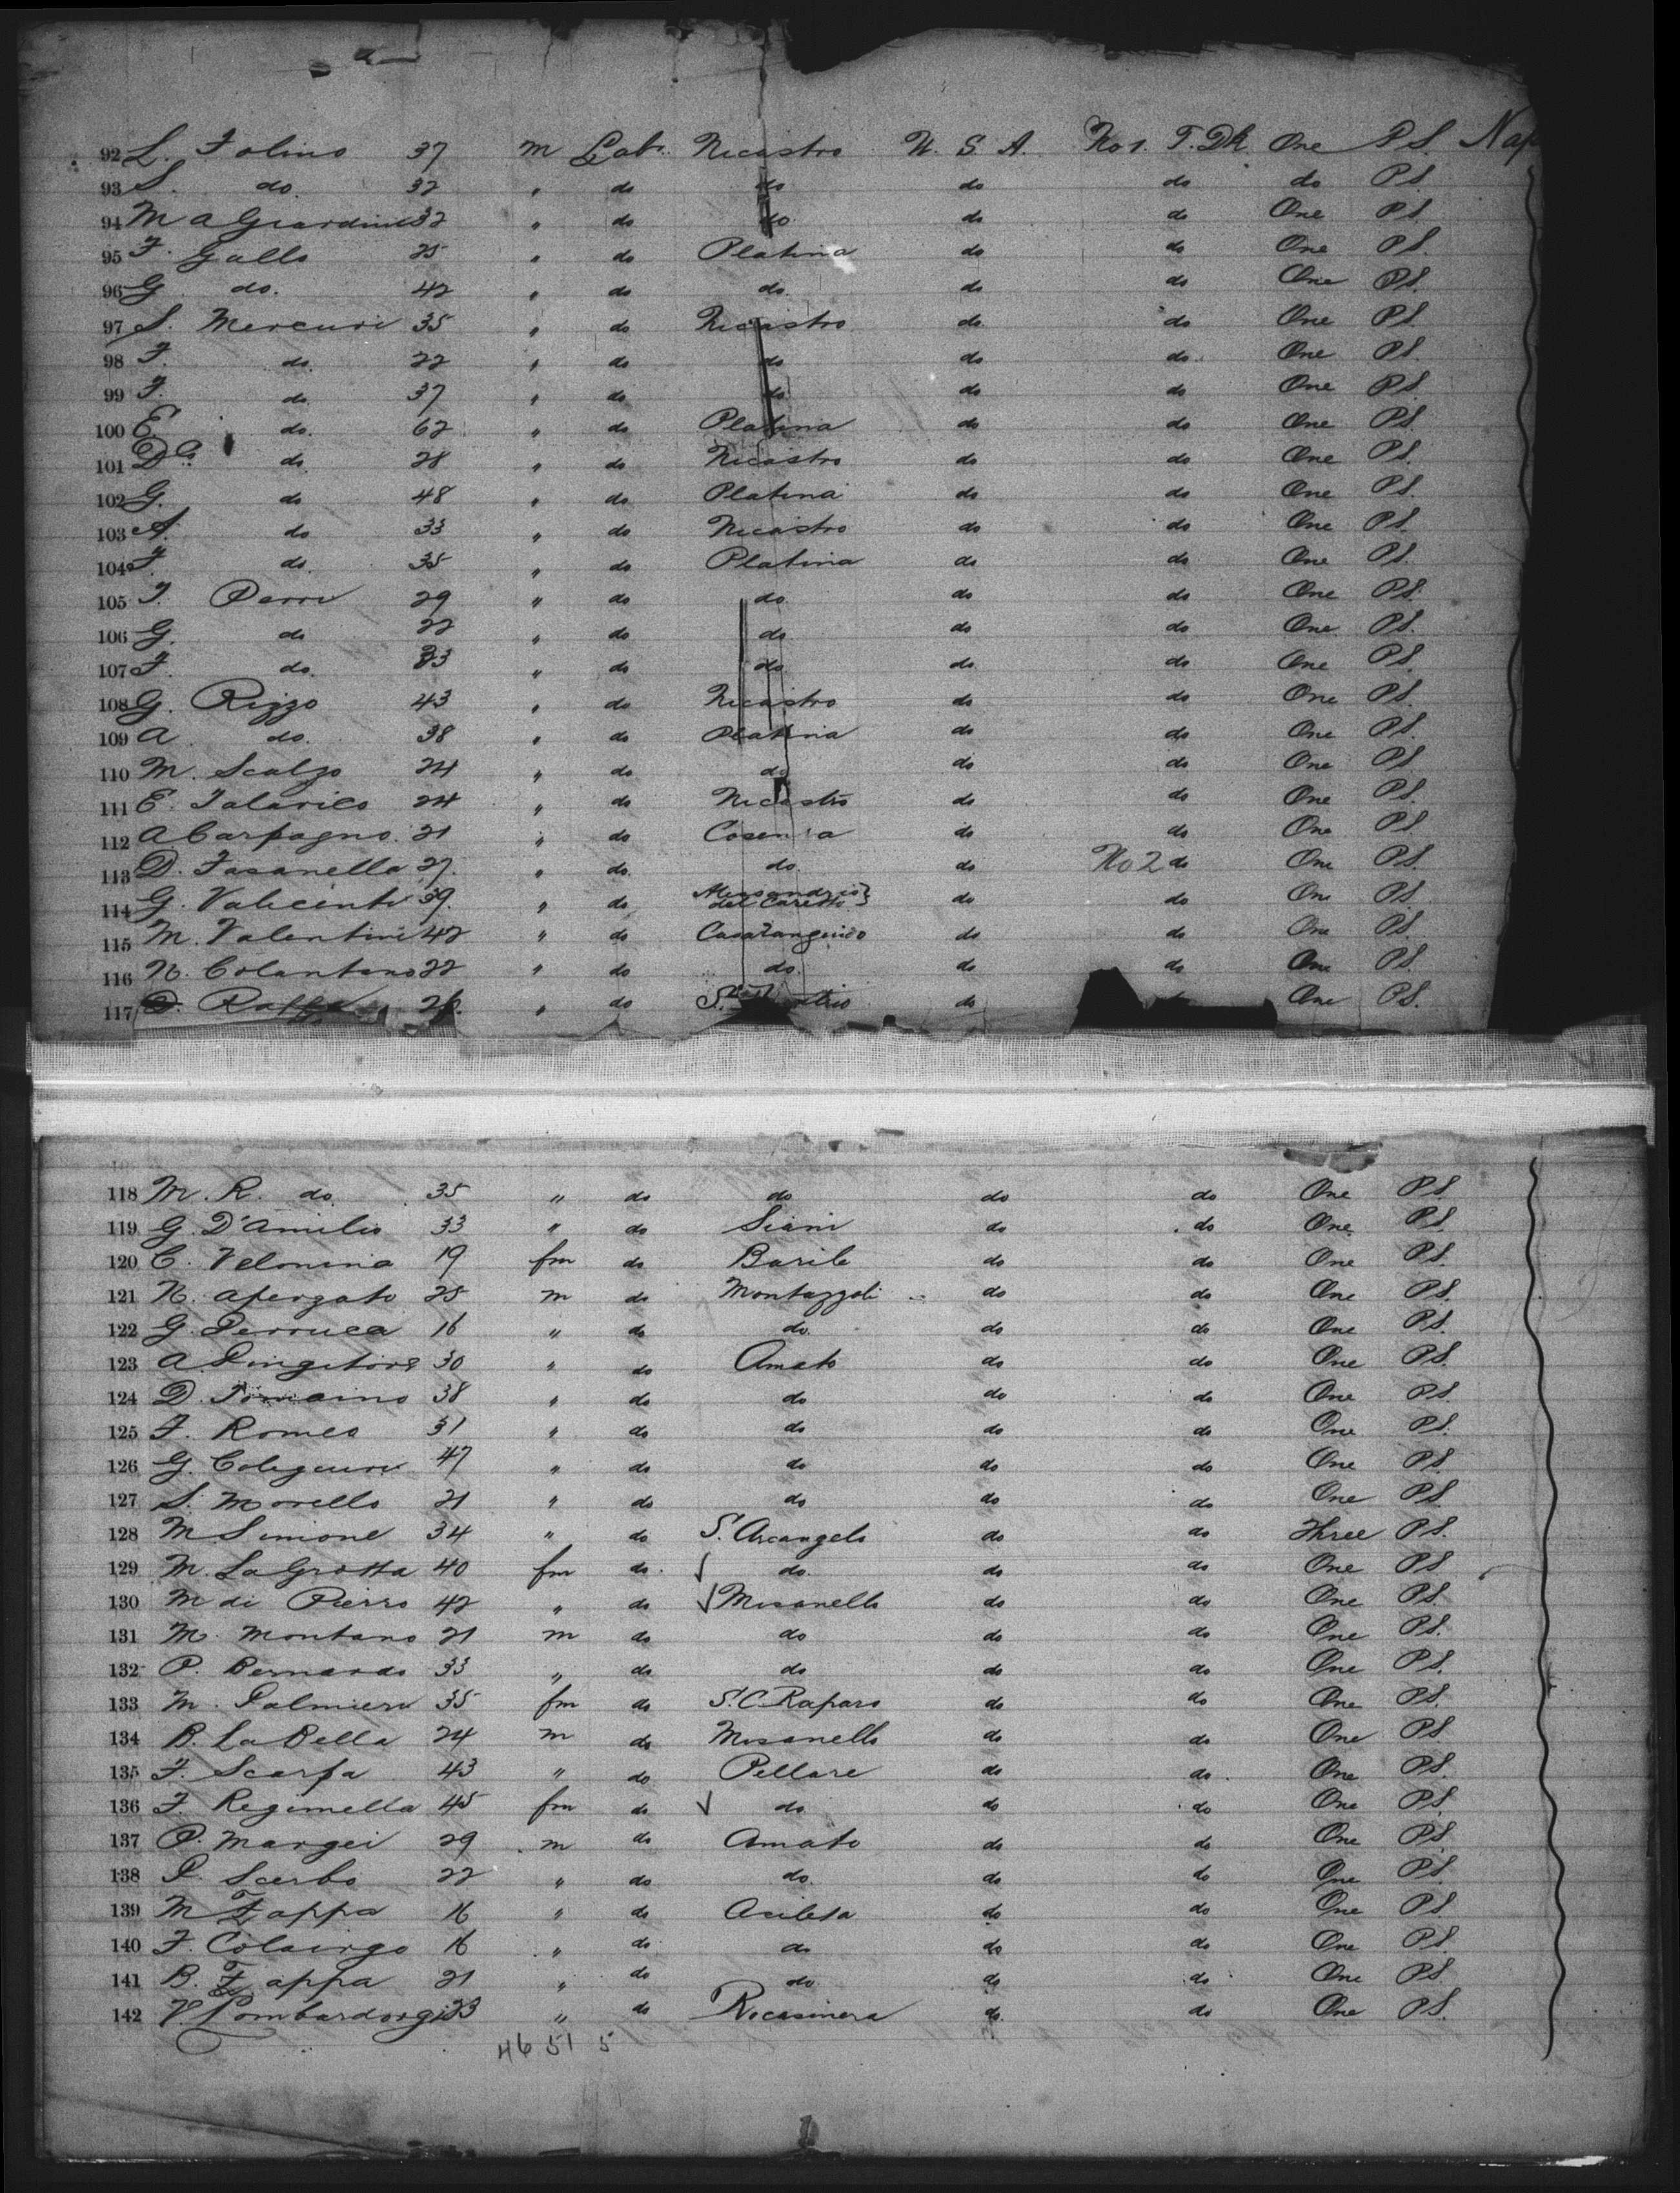 92 L. Folino 37 m Lab. Nicastro U. S. A. No 1. T. Dk One P.S. Nap
93 S. do. 32 " do do do do do P.S.
94 M a Giardino 32 " do do. do do One P.S.
95 F. Gallo 25 " do Platina do do One P.S.
96 G do. 42 " do do. do do One P.S.
97 S. Mercuri 35 " do Nicastro do. do One P.S.
98 F. do. 22 " do do do do. One P.S.
99 F. do. 37 " do do do do One P.S.
100 E do. 62 " do Platina do do One P.S.
101 Do. do 28 " do Nicastro do do One P.S.
102 G. do 48 " do Platina do do One P.S.
103 A. do 33 " do Nicastro do do One P.S.
104 F. do. 35 " do Platina do do One P.S.
105 F. Perri 29 " do do. do do One P.S.
106 G. do 22 " do do do do One P.S.
107 F. do. 33 " do do do. do One P.S.
108 G. Rizzo 43 " do Nicastro do do One P.S.
109 A do. 38 " do Platina do do One P.S.
110 M. Scalzo 24 " do do do do One P.S.
111 E. Talarico 24 " do Nicastro do do One P.S.
112 A Carpagno. 21 " do Cosenza do do One P.S.
113 D. Fasanella 27. " do. do. do No 2 do One P.S.
114 G. Valicenti 39. " do Alessandria del Caretto } do do One P.S.
115 M. Valentini 42 " do do do One P.S.
116 N. Colantono 22 " do do. do do One P.S.
117 " do do One P.S.
118 M. R. do 35 " do do do do One P.S.
119 G. D'Amilio 33 " do Siani do do One P.S.
120 C. Velonina 19 fm do Barile do do One P.S.
121 N. Apergato 25 m do Montazzoli do do One P.S.
122 G. Perruca 16 " do do. do do One P.S.
123 A Pingitore 30 " do Amato do do One P.S.
124 D. Tomaino 38 " do do do do One P.S.
125 F. Romeo 31 " do do do do One P.S.
126 G. 47 " do do do do One P.S.
127 S. Morello 21 " do do do do One P.S.
128 M Simone 34 " do S. Arcangelo do do Three P.S.
129 M. La Grotta 40 fm do. do. do do One P.S.
130 M di Pierro 42 " do Misanello do do One P.S.
131 M. Montano 21 m do do do do One P.S.
132 P. Bernardo 33 " do do do do One P.S.
133 M. Palmieri 35 fm do S. C. Raparo do do One P.S.
134 B. La Bella 24 m do Misanello do do One P.S.
135 F. Scarpa 43 " do Pellare do do. One P.S.
136 F. Regimella 45 fm do do do do One P.S.
137 P. Margei 29 m do Amato do do One P.S.
138 P. Scerbo 22 " do do. do do One P.S.
139 M Zappa 16 " do do do One P.S.
140 F. Colairgo 16 " do do do do One P.S.
141 B. Zappa 21 " do do do do One P.S.
142 V. Lombardorgi 23 " do Rocasinera do. do One P.S.
46 51 5